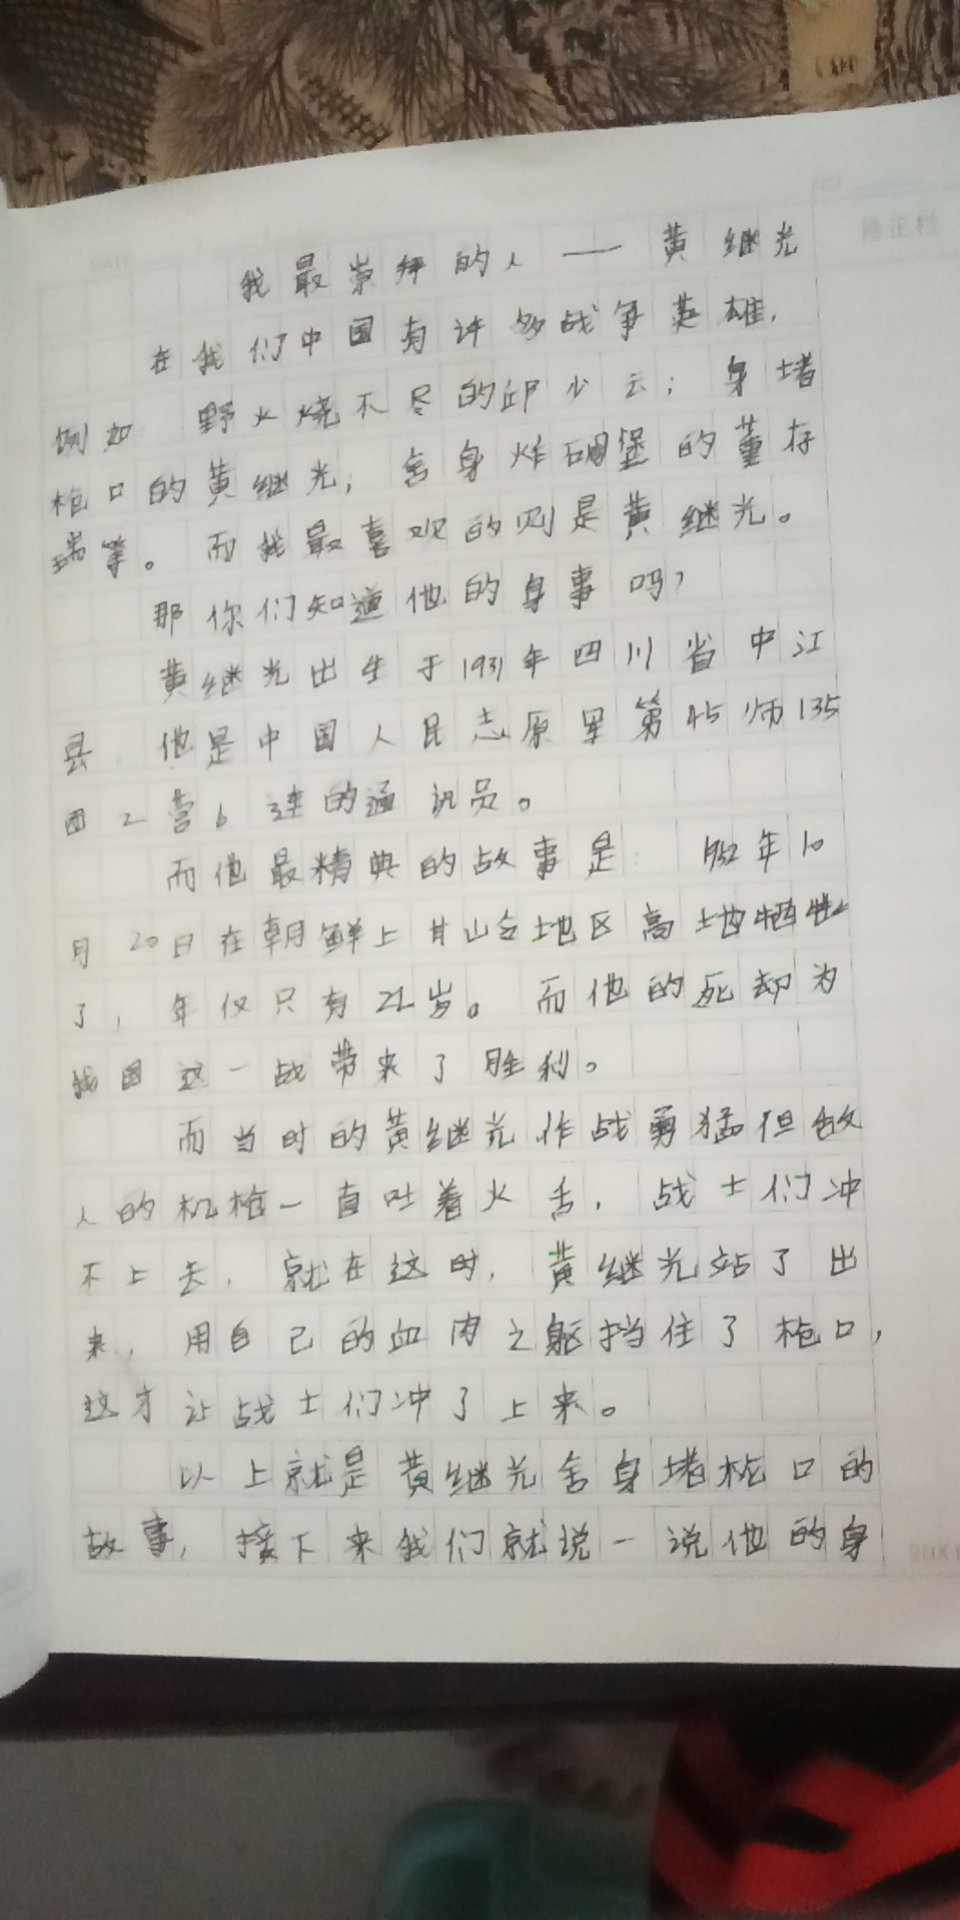 我最崇拜的人——黄继光
在我们中国有许多战争英雄，
例如 野火烧不尽的邱少云；身堵
枪口的黄继光；舍身炸碉堡的董存
瑞等。而我最喜欢的则是黄继光。
那你们知道他的身事吗？
黄继光出生于1931年四川省中江
县，他是中国人民志原军第45师135
团2营6连的通讯员。
而他最精典的故事是：1952年10
月20日在朝鲜上甘岭地区高地牺牲
了，年仅只有21岁。而他的死却为
我国这一战带来了胜利。
而当时的黄继光作战勇猛但敌
人的机枪一直吐着火舌，战士们冲
不上去，就在这时，黄继光站了出
来，用自己的血肉之躯挡住了枪口，
这才让战士们冲了上来。
以上就是黄继光舍身堵枪口的
故事，接下来我们就说一说他的身